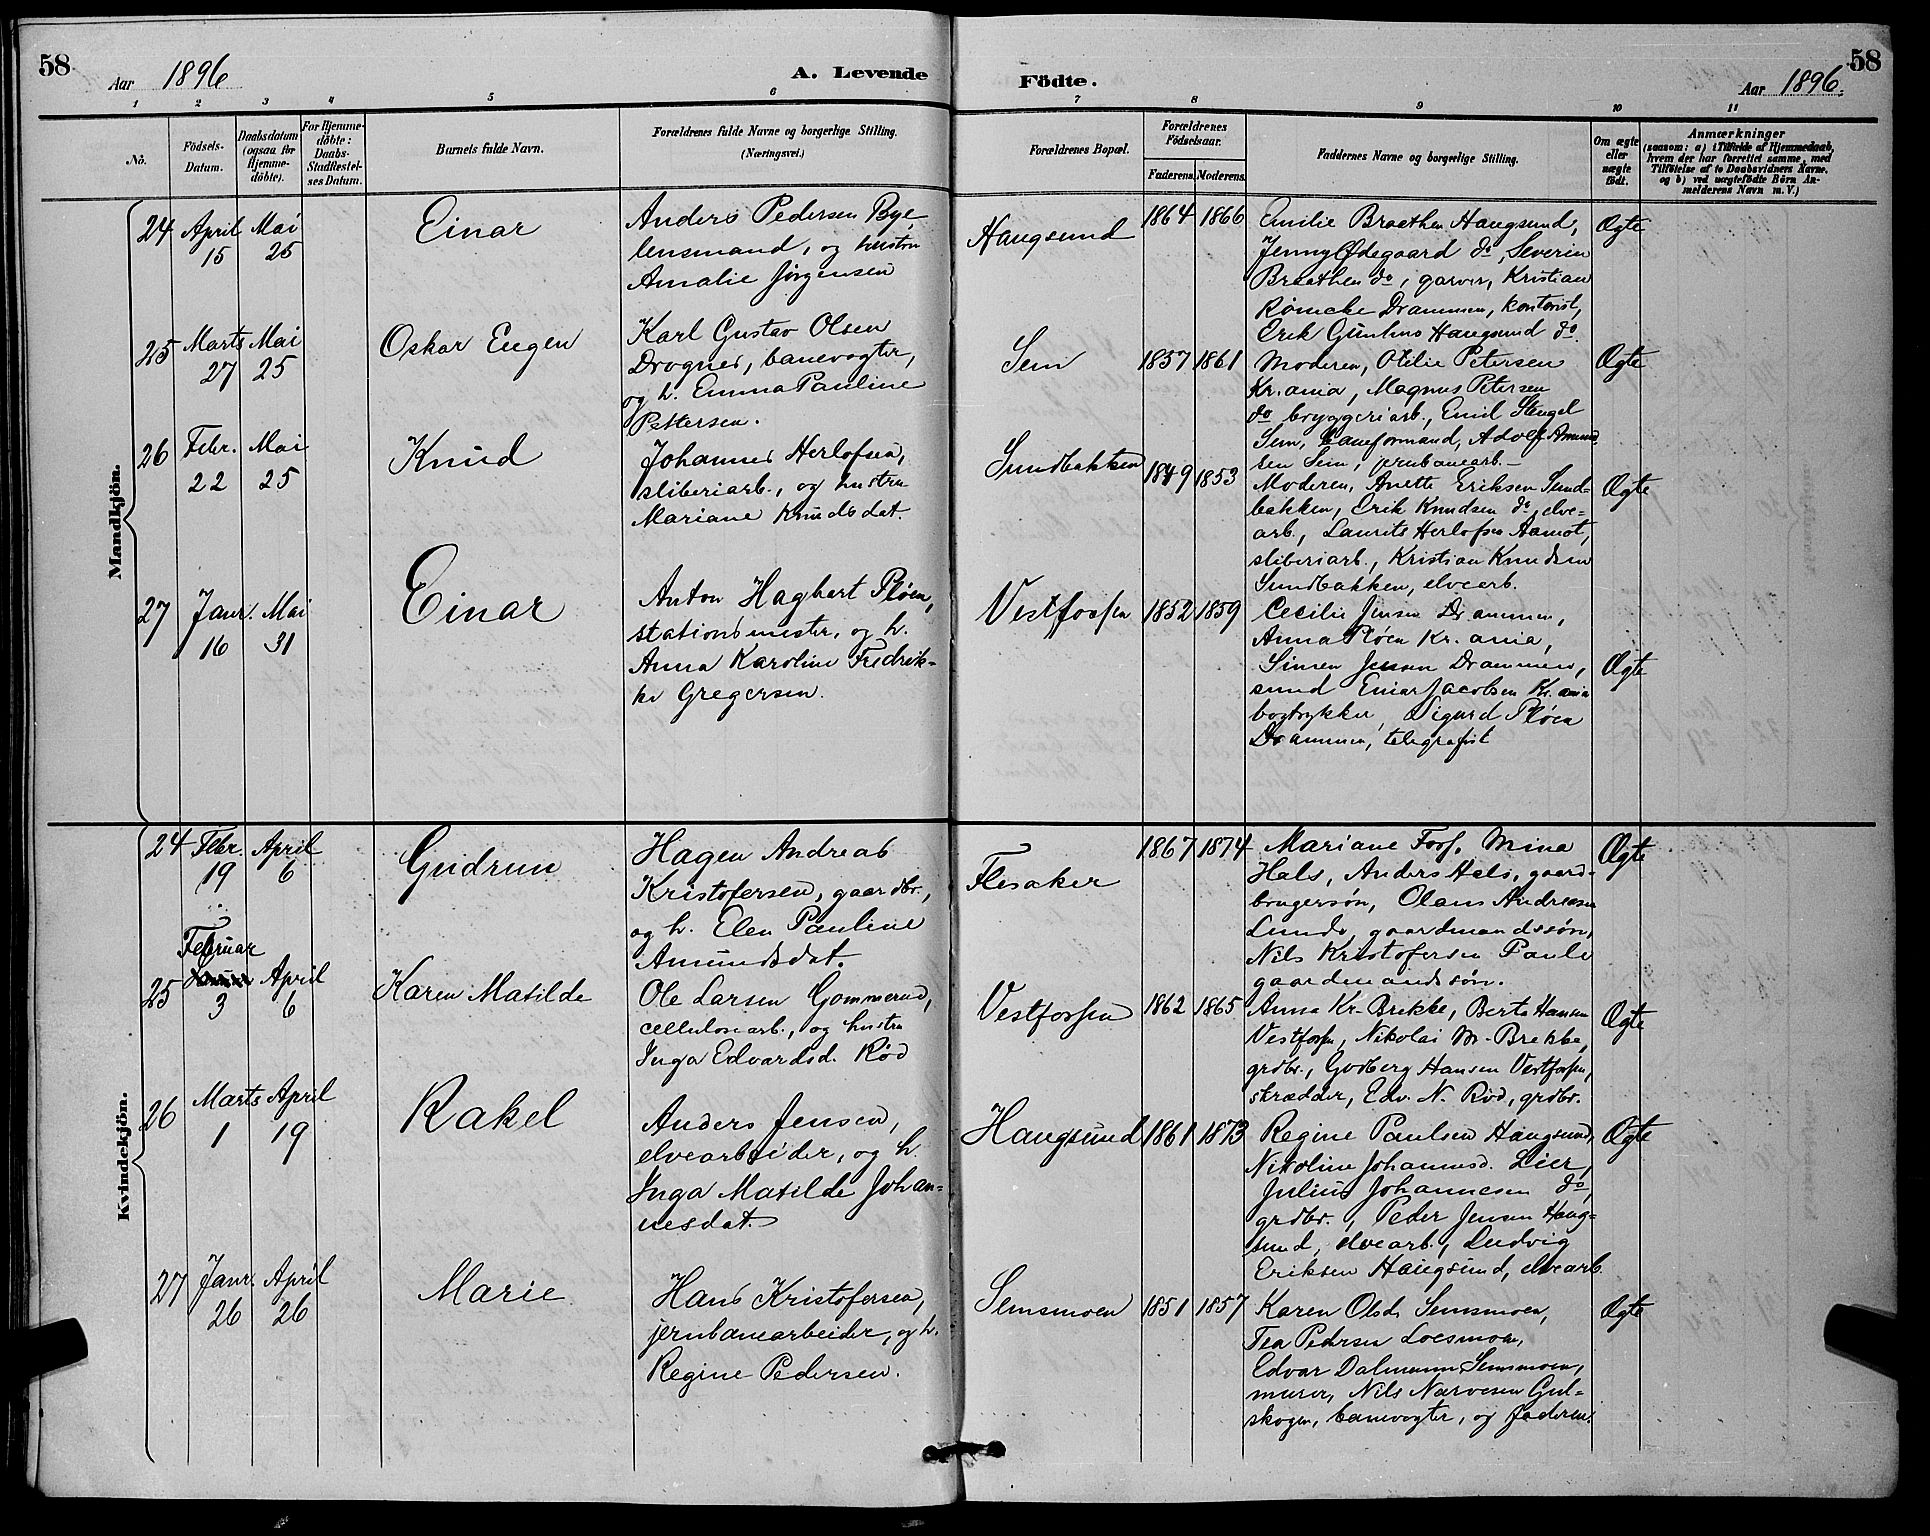 58
Aar 1896
A. Levende
Födte.
Aar 1896.
58
1 2 3 4 5 6 7 8 9 10 11
No.
Födsels-
Datum.
Daabsdatum
(ogsaa for
Hjemme-
döbte).
For Hjemme-
döbte:
Daabs-
Stadfæstel-
ses Datum.
Barnets fulde Navn.
Forældrenes fulde Navne og borgerlige Stilling.
(Næringsvei.)
Forældrenes Bopæl.
Forældrenes
Födselsaar.
Faderens. Moderens.
Faddernes Navne og borgerlige Stilling.
Om ægte
eller
uægte
födt.
Anmærkninger
(saasom: a) i Tilfælde af Hjemmedaab,
hvem der har forrettet samme, med
Tilföielse af to Daabsvidners Navne.
og b) ved uægtefödte Börn An-
melderens Navn m. V.)
Mandkjön.
24 April 15 Mai 25
Einar
Anders Pedersen Bye
lensmand, og hustru
Amalie Jörgensen
Haugsund
1864 1866
Emilie Braathen Haugsund,
Jenny Ødegaard do, Severin
Braathen do, garver, Kristian
Römcke Drammen, kontorist,
Erik Gunhus Haugsund do.
Ægte
25 Marts 27 Mai 25
Oskar Eugen
Karl Gustav Olsen
Drognes, banevogter,
og h. Emma Pauline
Pettersen.
Sem
1857 1861
Moderen, Otilie Petersen
Kr.ania, Magnus Petersen
do bryggeriarb., Emil Stengel
Sem, baneformand, Adolf Amund
sen Sem, jernbanearb.
Ægte
26 Febr. 22 Mai 25
Knud
Johannes Herlofsen,
sliberiarb., og hustru
Mariane Knudsdat.
Sundbakken
1849 1853
Moderen, Anette Eriksen Sund-
bakken, Erik Knudsen do, elve-
arb., Laurits Herlofsen Aamot,
sliberiarb., Kristian Knudsen
Sundbakken, elvearb.
Ægte
27 Janr. 16 Mai 31
Einar
Anton Hagbart Plöen,
stationsmester, og h.
Anna Karoline Fredrik-
ke Gregersen.
Vestfossen
1852 1859
Cecilie Jensen Drammen,
Anna Plöen Kr.ania,
Simen Jensen Drammen,
smed Einar Jacobsen Kr.ania
bogtrykker, Sigurd Plöen
Drammen, telegrafist
Ægte
Kvindekjön.
24 Febr. 19 April 6
Gudrun
Hagen Andreas
Kristofersen, gaardbr.,
og h. Elen Pauline
Amundsdat.
Flesaker
1867 1874
Mariane Fosf. Mina
Hals, Anders Hals, gaard-
brugersön, Olaus Andresen
Lunde, gaardmandssön,
Nils Kristofersen Paule
gaardmandssön.
Ægte
25 Februar 3 April 6
Karen Matilde
Ole Larsen Gommerud,
cellulosearb., og hustru
Inga Edvardsd. Röd
Vestfossen
1862 1865
Anna Kr. Brekke, Berte Hansen
Vestfossen, Nikolai M. Brekke,
grdbr., Gudberg Hansen Vestfossen,
skrædder, Edv. N. Röd, grdbr.
Ægte
26 Marts 1 April 19
Rakel
Anders Jensen,
elvearbeider, og h.
Inga Matilde Johan-
nesdat.
Haugsund
1861 1873
Regine Paulsen Haugsund,
Nikoline Johannesd. Lier,
Julius Johannesen do,
grdbr., Peder Jensen Haug-
sund, elvearb., Ludvig
Eriksen Haugsund, elvearb.
Ægte
27 Janr. 26 April 26
Marie
Hans Kristofersen,
jernbanearbeider, og h.
Regine Pedersen.
Semsmoen
1851 1857
Karen Olsd. Semsmoen,
Tea Pedersen Loesmoen,
Edvar Dalmann Semsmoen,
murer, Nils Narvesen Gul-
skogen, banevogter, og faderen.
Ægte